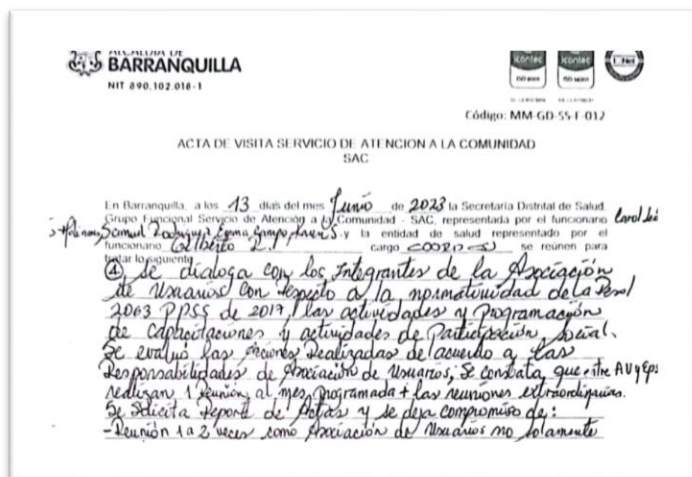 ALCALDIA DE
BARRANQUILLA
NIT 890.102.018-1
icontec
icontec
ISO 9001
Código: MM-GD-SS-F-012
ACTA DE VISITA SERVICIO DE ATENCION A LA COMUNIDAD
SAC
En Barranquilla, a los 13 dias del mes Junio de 2023 la Secretaría Distrital de Salud,
Grupo Funcional Servicio de Atención a la Comunidad - SAC, representada por el funcionario Carol
Samuel Rodriguez, Emma Campo, y la entidad de salud representado por el
funcionario Gilberto R. cargo COORD se reúnen para
tratar lo siguiente
① se dialoga con los Integrantes de la Asociación
de Usuarios con respecto a la normatividad de la Resol
2063 PPSS de 2017, las actividades y Programación
de capacitaciones y actividades de Participación social.
Se evaluó las acciones Realizadas de acuerdo a las
Responsabilidades de Asociación de Usuarios, se constata, que entre AU y Eps
realizan 1 Reunión al mes, programada + las reuniones extraordinarias.
Se solicita Reporte de Actas y se deja compromiso de:
-Reunión 1 a 2 veces como Asociación de Usuarios no solamente